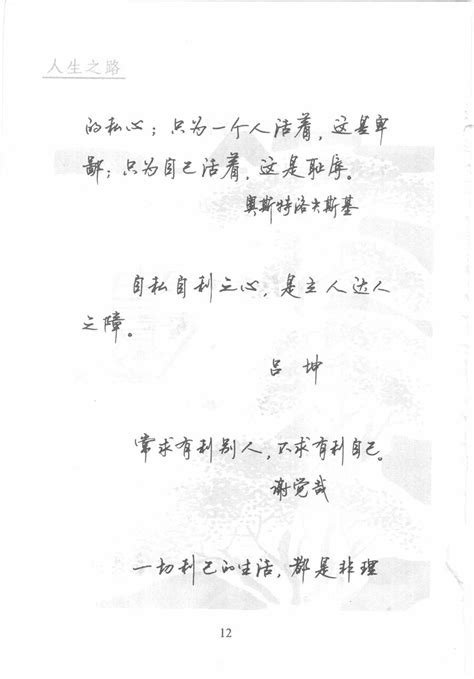 人生之路
的私心；只为一个人活着，这是卑
鄙；只为自己活着，这是耻辱。
奥斯特洛夫斯基
自私自利之心，是立人达人
之障。
吕坤
常求有利别人，不求有利自己。
谢觉哉
一切利己的生活，都是非理
12